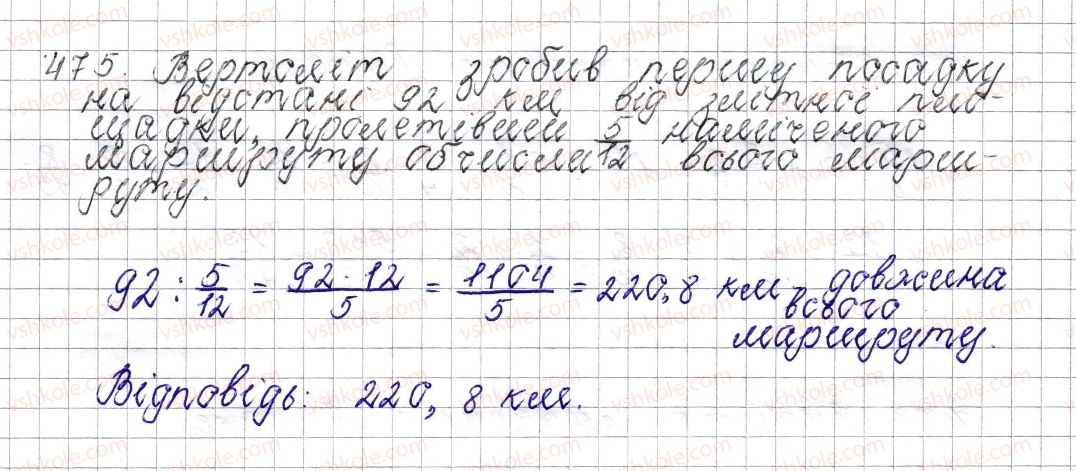 475. Вертоліт зробив першу посадку
на відстані 92 км від злітної пло-
щадки, пролетівши 5/12 наміченого
маршруту. Обчисли всього марш-
руту.
92 : 5/12 = 92 · 12/5 = 1104/5 = 220,8 км - довжина
всього
маршруту.
Відповідь: 220,8 км.